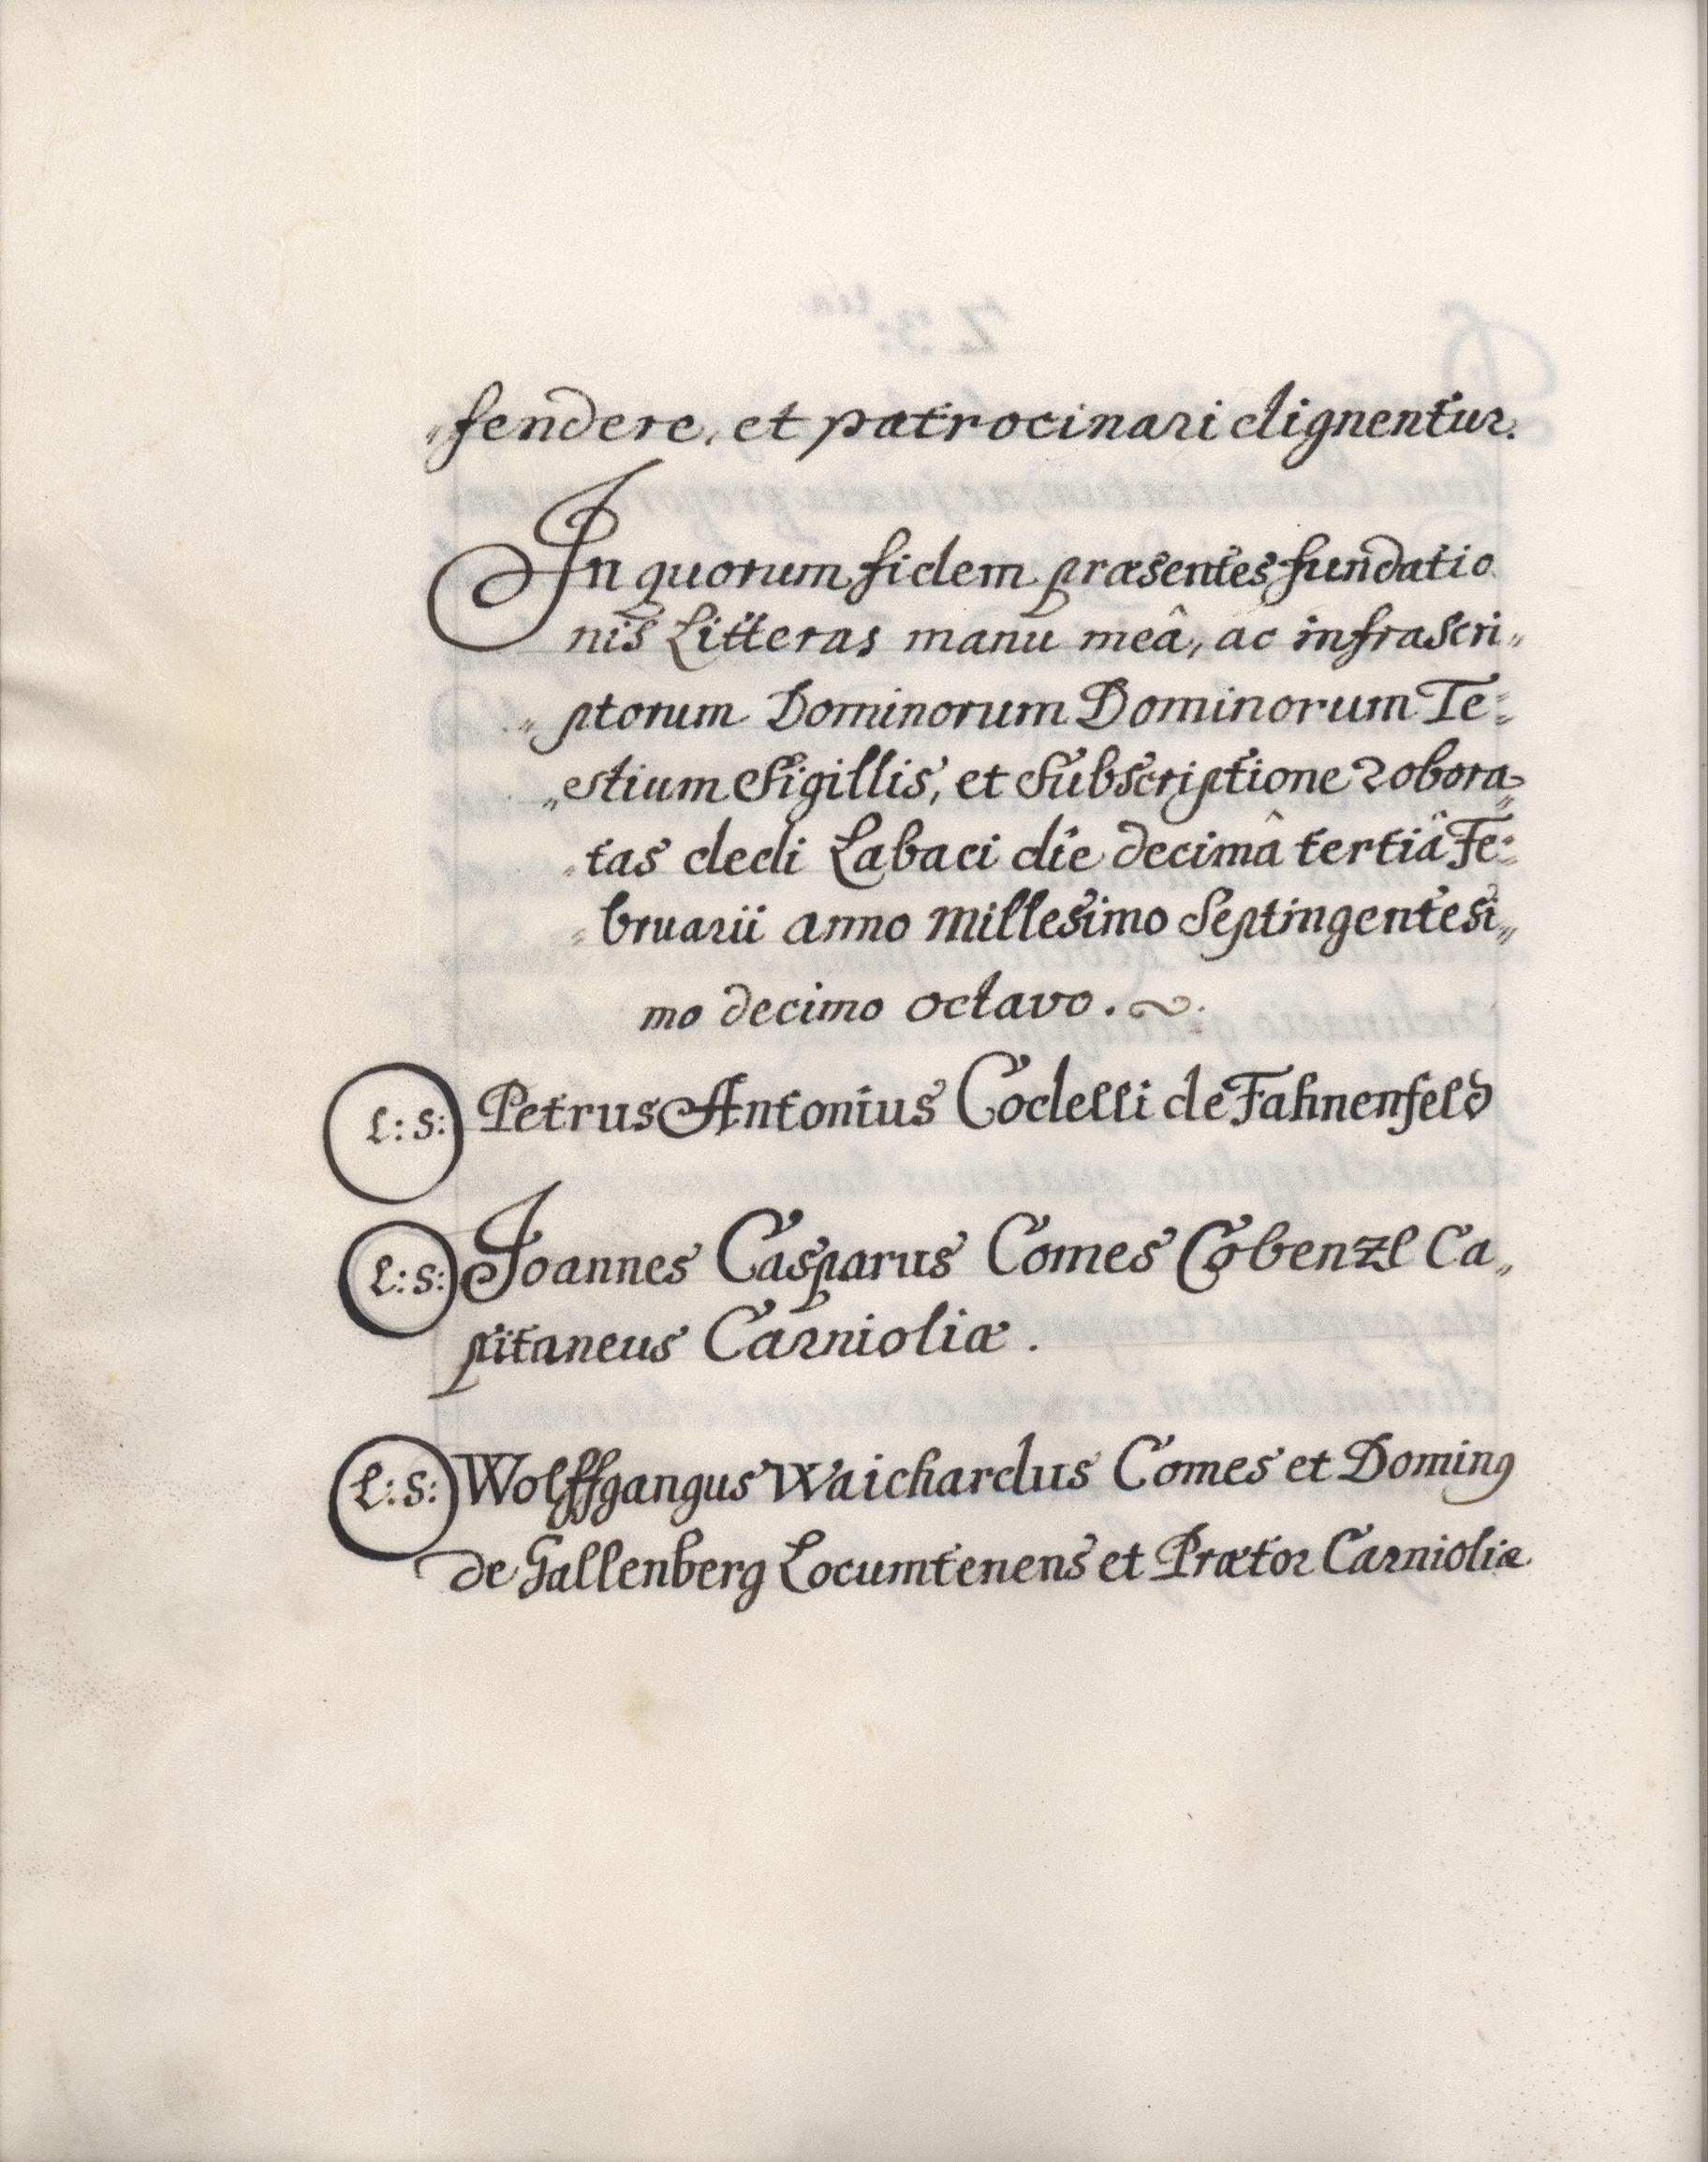 „fendere, et patrocinari dignentur.
In quorum fidem præsentes fundatio
nis Litteras manu meâ, ac infrascri„
„ptorum Dominorum Dominorum Te„
„estium Sigillis, et Subscriptione robora„
„tas dedi Labaci die decimâ tertiâ Fe„
„bruarii anno Millesimo Septingentesi„
mo decimo octavo.
L: S: Petrus Antonius Codelli de Fahnenfeld
L: S: Joannes Casparus Comes Cobenzl Ca„
pitaneus Carnioliæ.
L: S: Wolffgangus Waichardus Comes et Dominꝰ
de Gallenberg Locumtenens et Prætor Carnioliæ